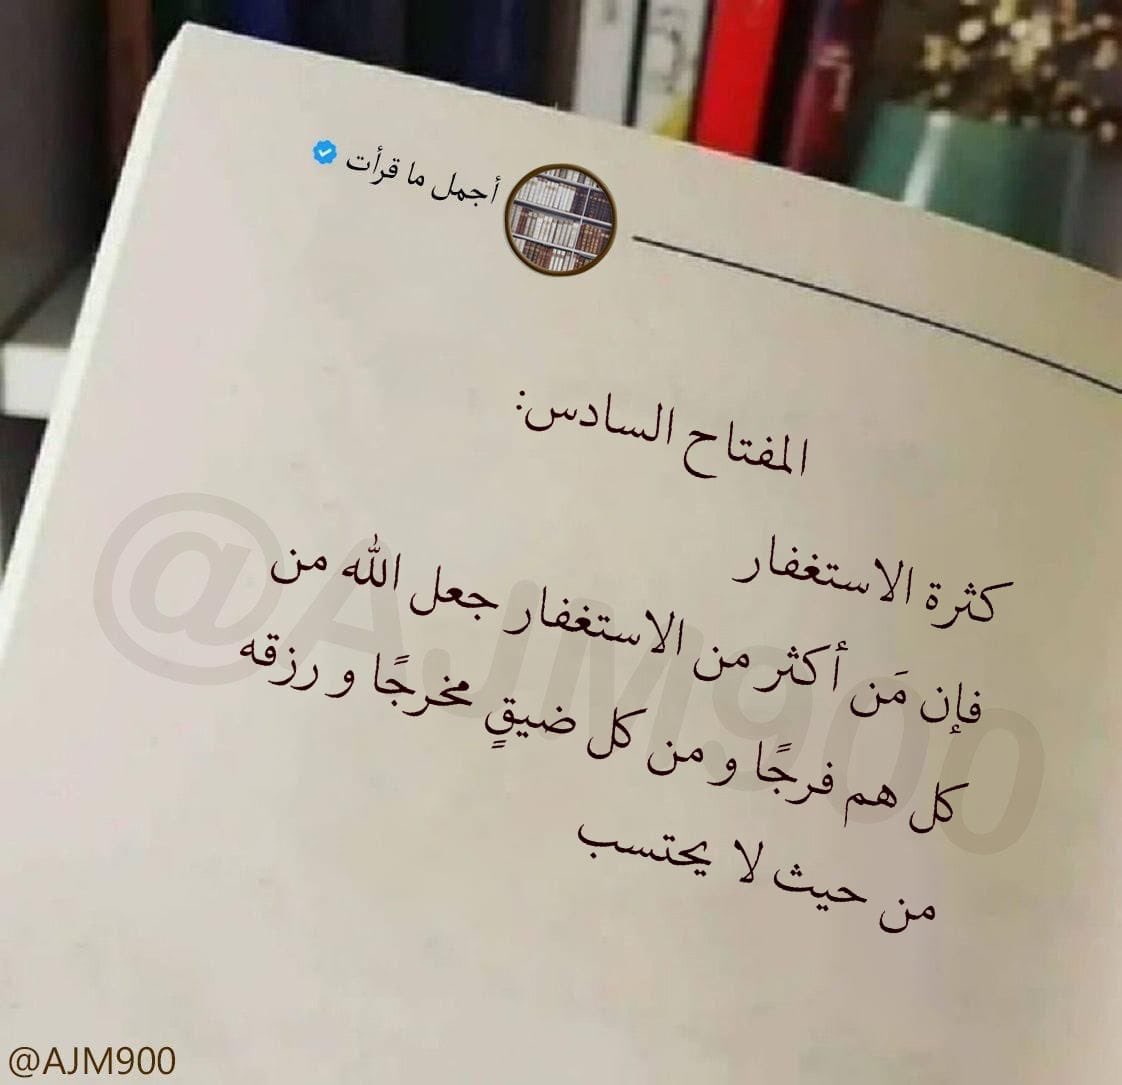 أجمل ما قرأت
المفتاح السادس:
كثرة الاستغفار
فإن مَن أكثر من الاستغفار جعل الله من
كل هم فرجًا و من كل ضيقٍ مخرجًا و رزقه
من حيث لا يحتسب
@AJM900
@AJM900